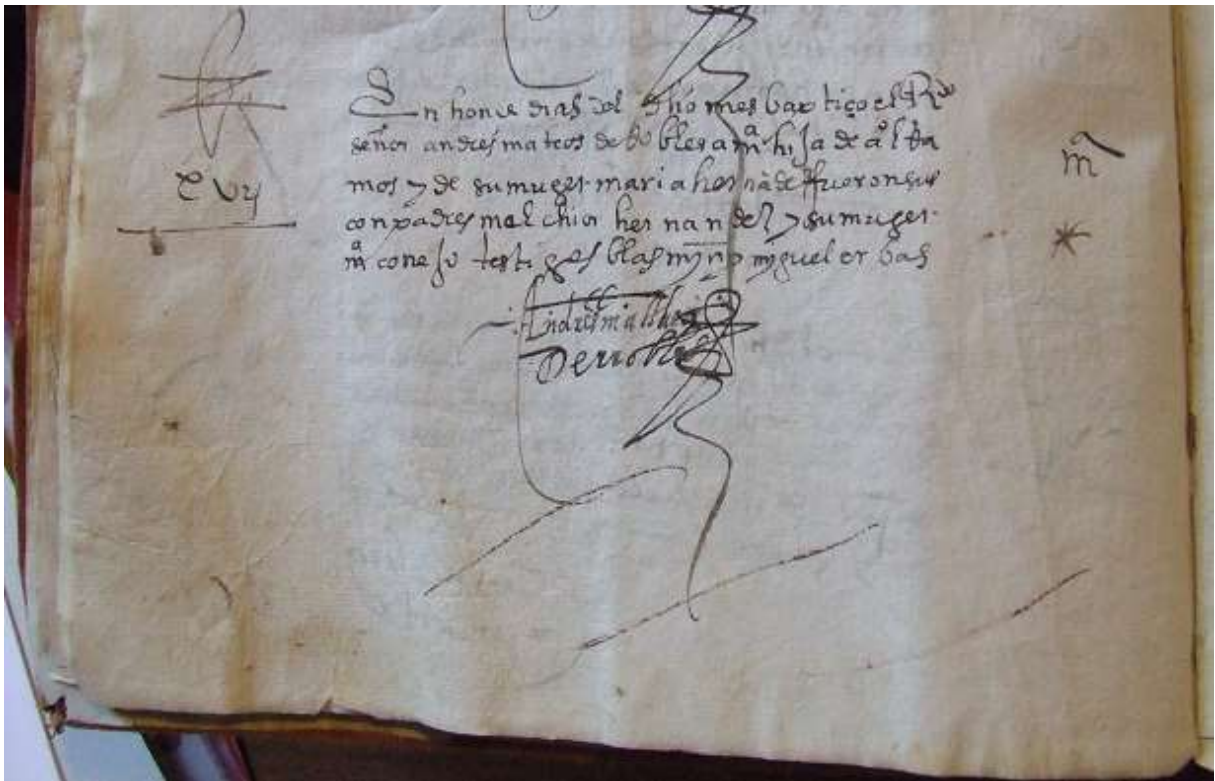 En honce dias del dho mes baptiço el Rdo
señor andres mateos de Robles a ma hija de
mos y de su muger maria hernãdez fueron sus
conpadres melchior hernandez y su muger
ma conejo testigos blas mýn y myguel
Andres matheos
de rrobles
ma